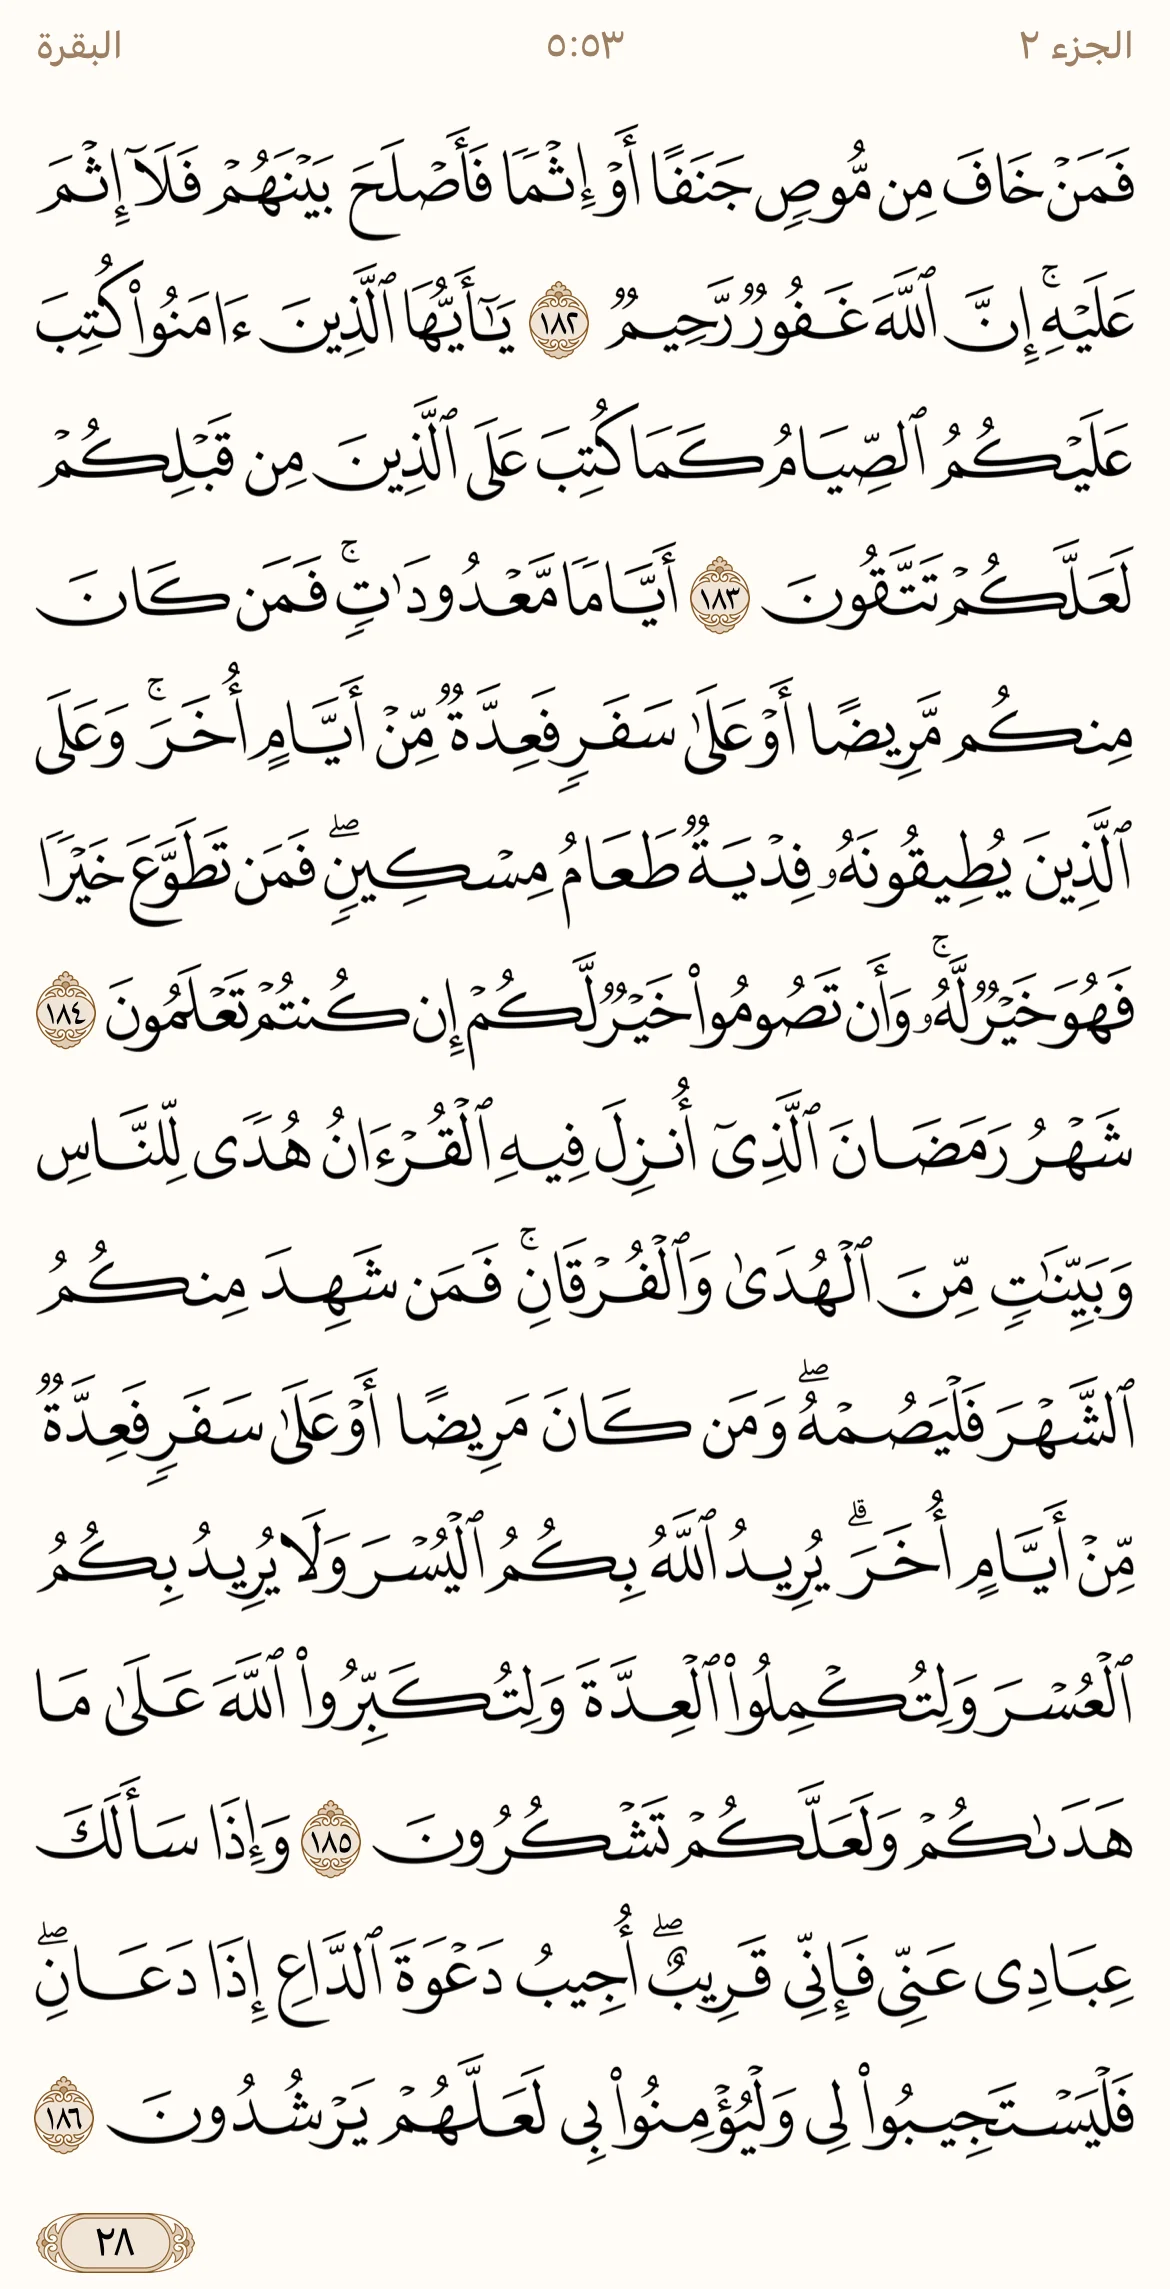 الجزء ٢
٥:٥٣
البقرة
فَمَنْ خَافَ مِن مُّوصٍ جَنَفًا أَوْ إِثْمًا فَأَصْلَحَ بَيْنَهُمْ فَلَآ إِثْمَ
عَلَيْهِۚ إِنَّ ٱللَّهَ غَفُورٌ رَّحِيمٌ ١٨٢ يَٰٓأَيُّهَا ٱلَّذِينَ ءَامَنُوا۟ كُتِبَ
عَلَيْكُمُ ٱلصِّيَامُ كَمَا كُتِبَ عَلَى ٱلَّذِينَ مِن قَبْلِكُمْ
لَعَلَّكُمْ تَتَّقُونَ ١٨٣ أَيَّامًا مَّعْدُودَٰتٍۚ فَمَن كَانَ
مِنكُم مَّرِيضًا أَوْ عَلَىٰ سَفَرٍ فَعِدَّةٌ مِّنْ أَيَّامٍ أُخَرَۚ وَعَلَى
ٱلَّذِينَ يُطِيقُونَهُۥ فِدْيَةٌ طَعَامُ مِسْكِينٍۖ فَمَن تَطَوَّعَ خَيْرًا
فَهُوَ خَيْرٌ لَّهُۥۚ وَأَن تَصُومُوا۟ خَيْرٌ لَّكُمْ إِن كُنتُمْ تَعْلَمُونَ ١٨٤
شَهْرُ رَمَضَانَ ٱلَّذِىٓ أُنزِلَ فِيهِ ٱلْقُرْءَانُ هُدًى لِّلنَّاسِ
وَبَيِّنَٰتٍ مِّنَ ٱلْهُدَىٰ وَٱلْفُرْقَانِۚ فَمَن شَهِدَ مِنكُمُ
ٱلشَّهْرَ فَلْيَصُمْهُۖ وَمَن كَانَ مَرِيضًا أَوْ عَلَىٰ سَفَرٍ فَعِدَّةٌ
مِّنْ أَيَّامٍ أُخَرَۗ يُرِيدُ ٱللَّهُ بِكُمُ ٱلْيُسْرَ وَلَا يُرِيدُ بِكُمُ
ٱلْعُسْرَ وَلِتُكْمِلُوا۟ ٱلْعِدَّةَ وَلِتُكَبِّرُوا۟ ٱللَّهَ عَلَىٰ مَا
هَدَىٰكُمْ وَلَعَلَّكُمْ تَشْكُرُونَ ١٨٥ وَإِذَا سَأَلَكَ
عِبَادِى عَنِّى فَإِنِّى قَرِيبٌۖ أُجِيبُ دَعْوَةَ ٱلدَّاعِ إِذَا دَعَانِۖ
فَلْيَسْتَجِيبُوا۟ لِى وَلْيُؤْمِنُوا۟ بِى لَعَلَّهُمْ يَرْشُدُونَ ١٨٦
٢٨